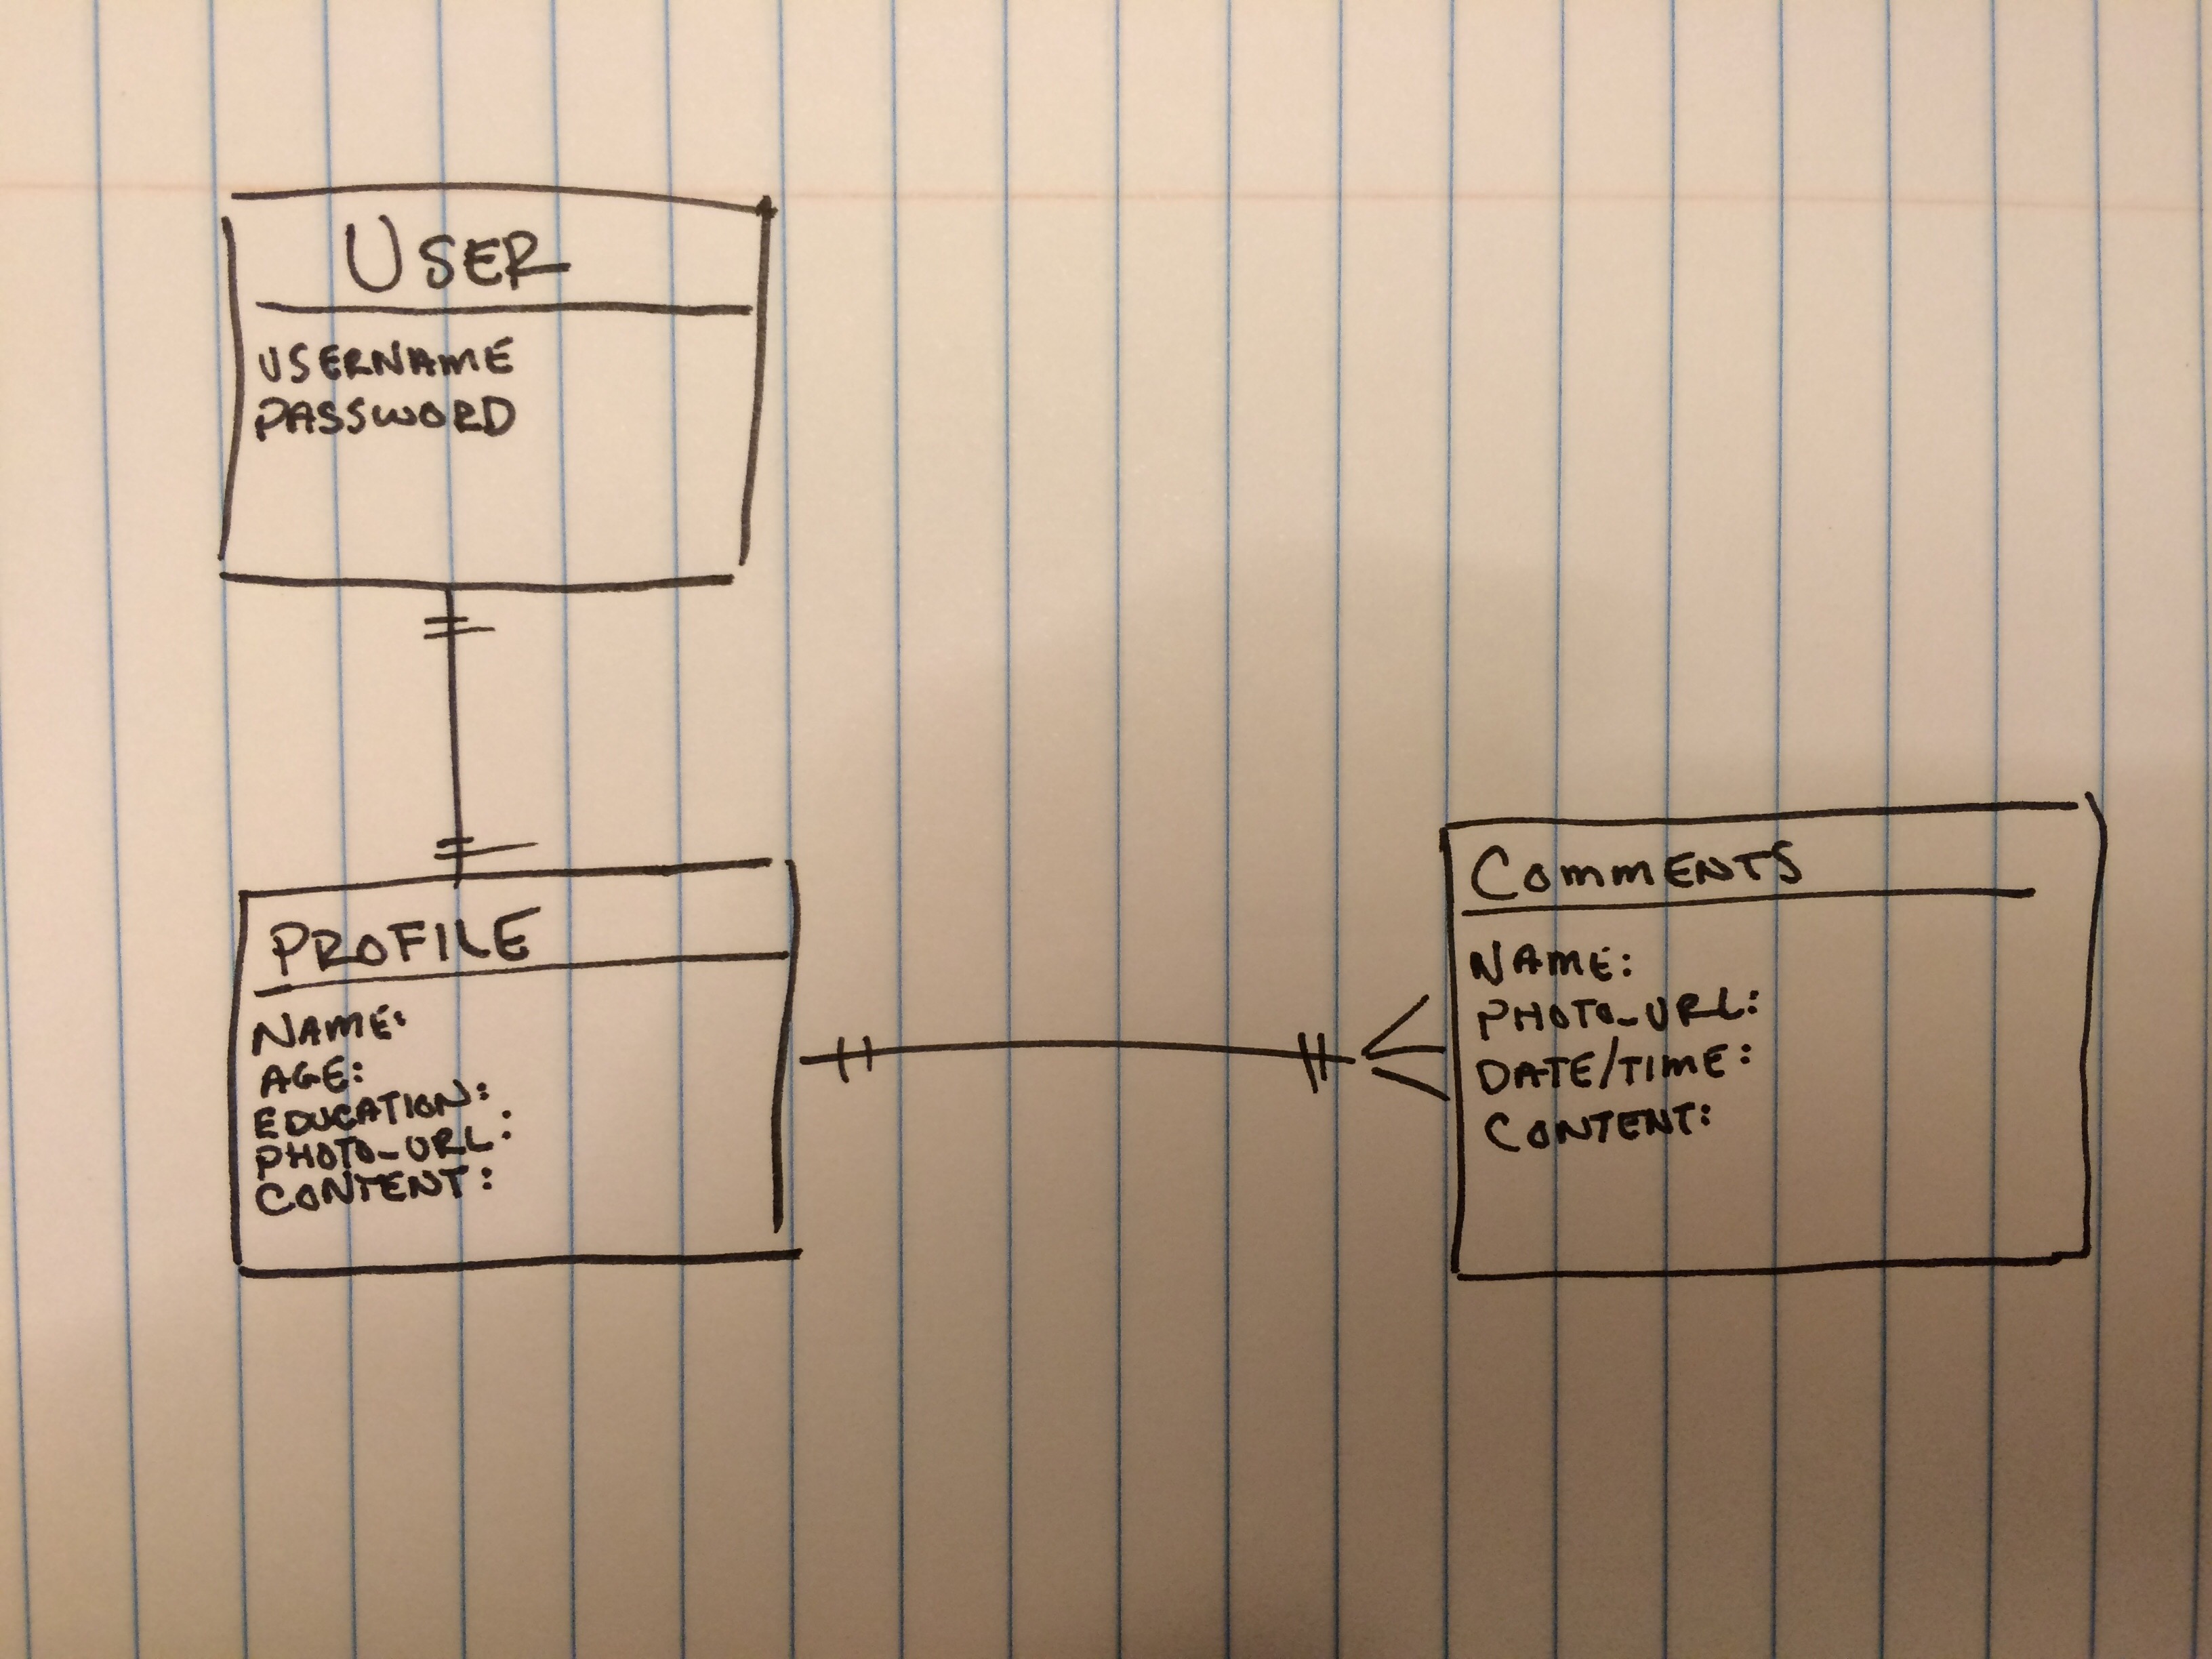 USER
USERNAME
PASSWORD
PROFILE
NAME:
AGE:
EDUCATION:
PHOTO_URL:
CONTENT:
COMMENTS
NAME:
PHOTO_URL:
DATE/TIME:
CONTENT: